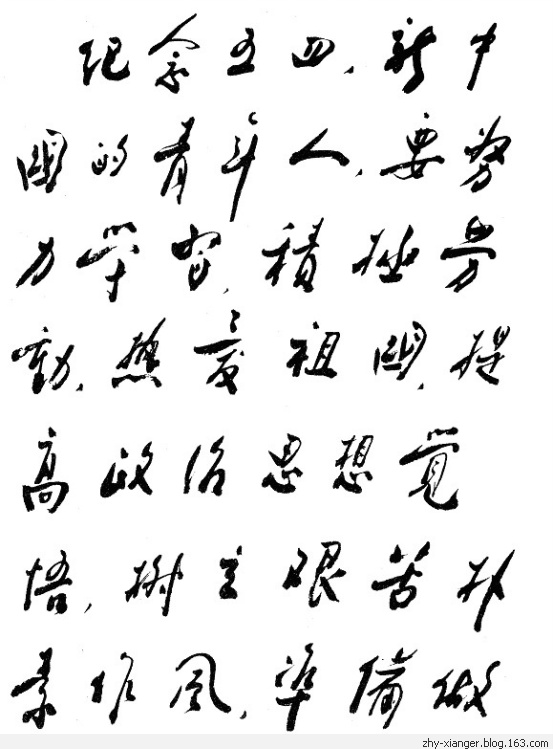 纪念五四，新中
國的青年人，要努
力学習，積極劳
動，热爱祖國，提
高政治思想覚
悟，樹立艰苦朴
素作风，準備做
zhy-xianger.blog.163.com